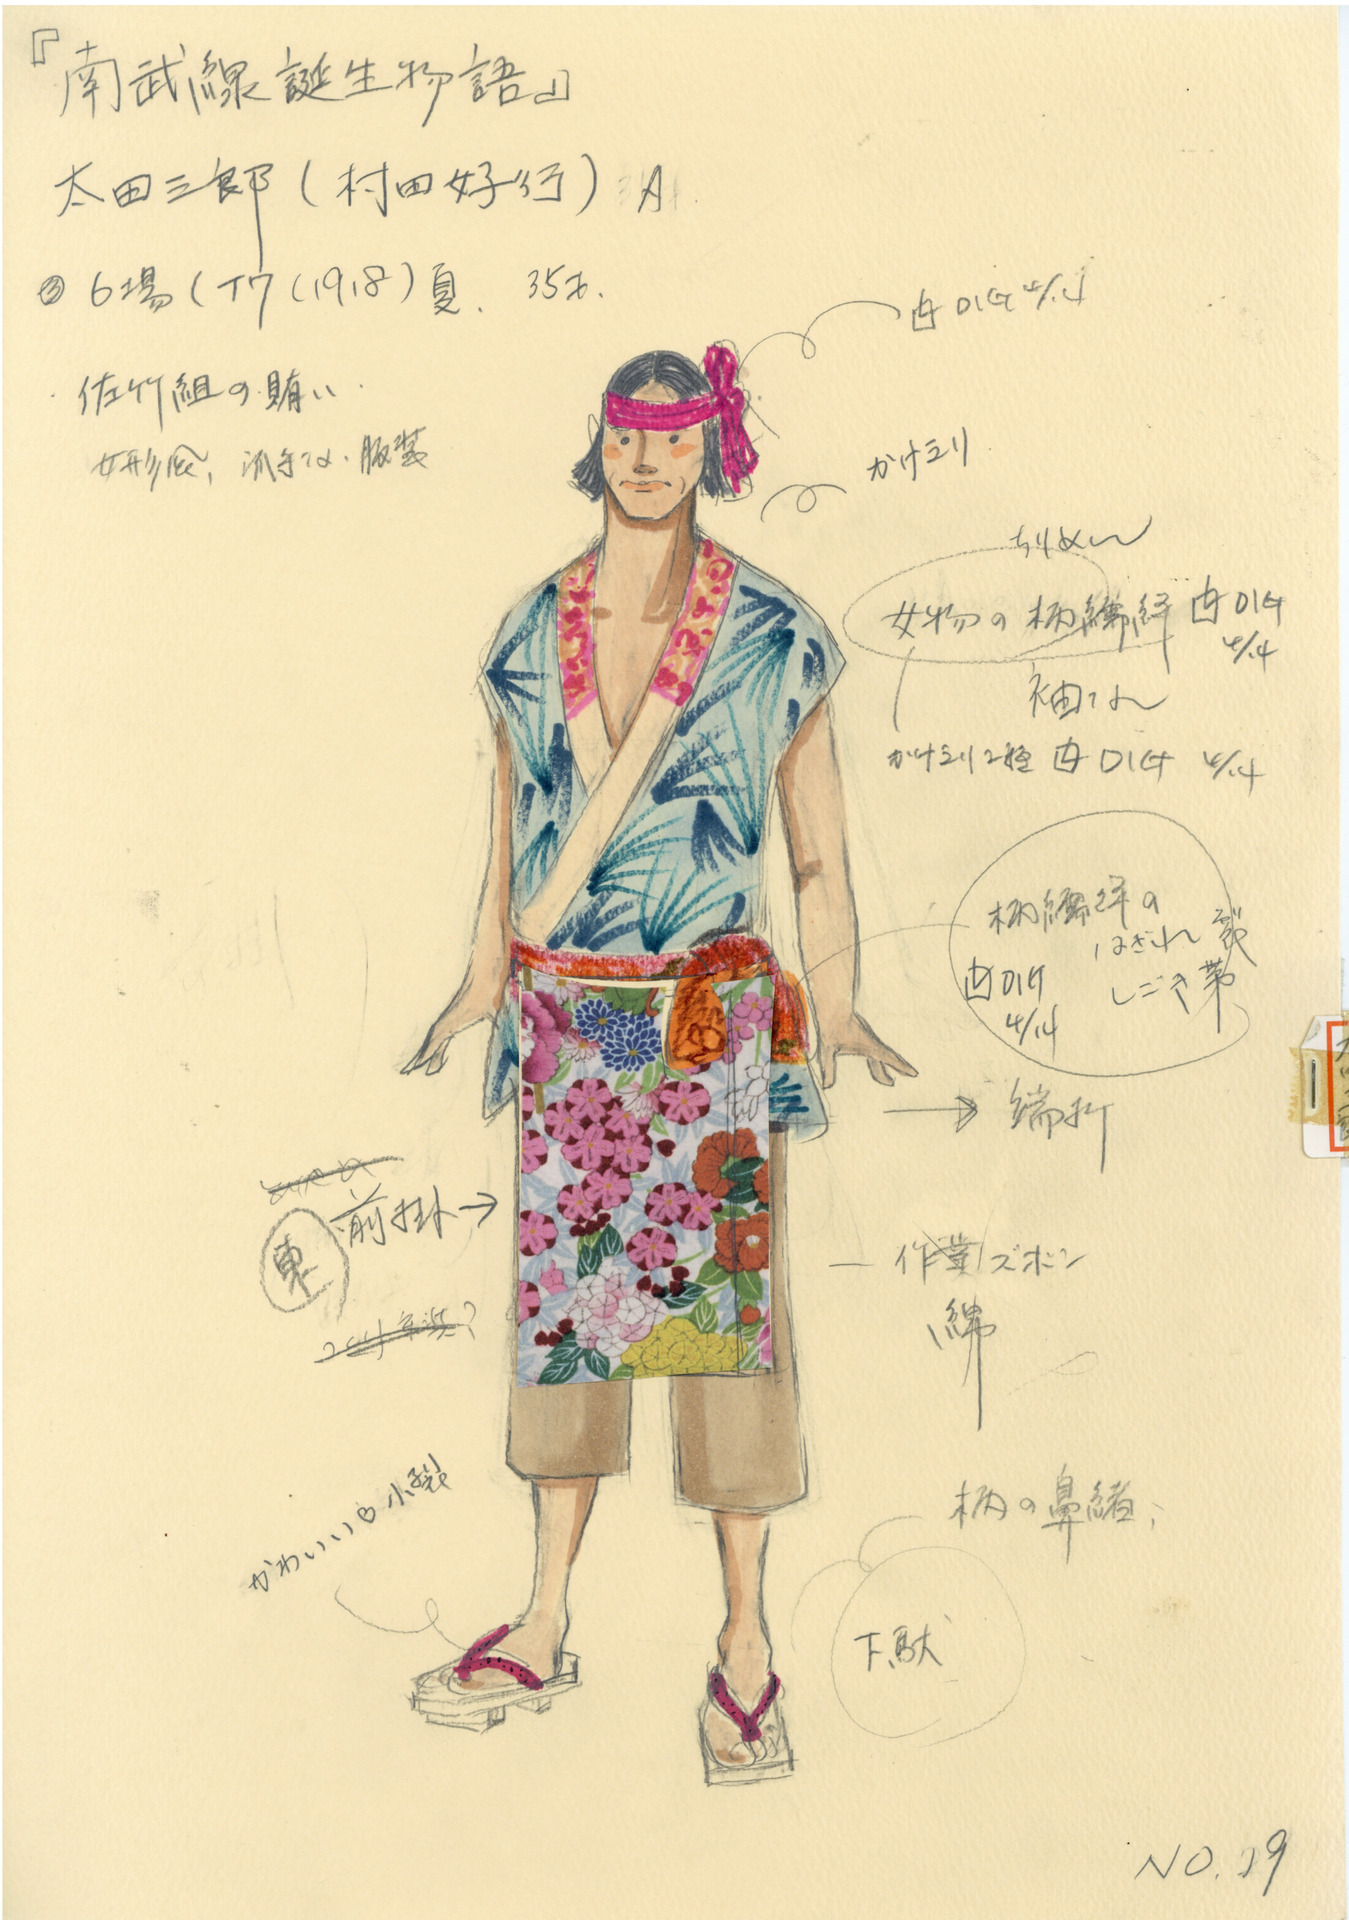 『南武線誕生物語』
太田三郎(村田好行) A
6場(T7(1918)夏. 35才.
佐竹組の賄い
女形風、派手な服装
かけえり
ちりめん
女物の柄襦袢
4/14
袖なし
かけえり2種
4/14
柄襦袢の
はぎれ
しごき帯
4/14
端折
前掛
東
作業ズボン
綿
かわいい小裂
柄の鼻緒
下駄
NO.29